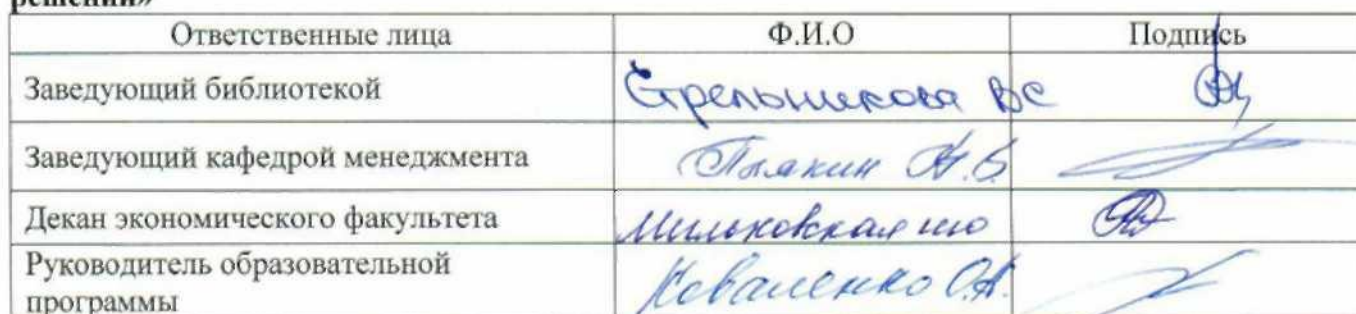 решений»
Ответственные лица Ф.И.О Подпись
Заведующий библиотекой Стрельникова ВС
Заведующий кафедрой менеджмента
Декан экономического факультета Мильковская
Руководитель образовательной Коваленко О.А.
программы